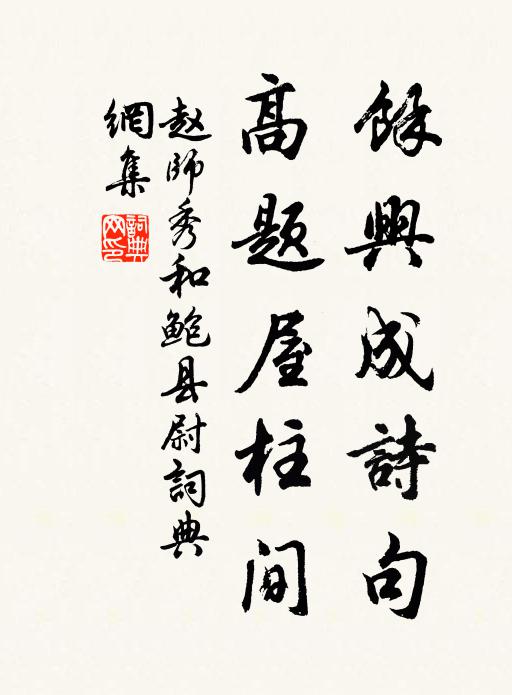 餘興成詩句
高題屋柱间
赵師秀和鮑县尉詞典
網集
詞典網印